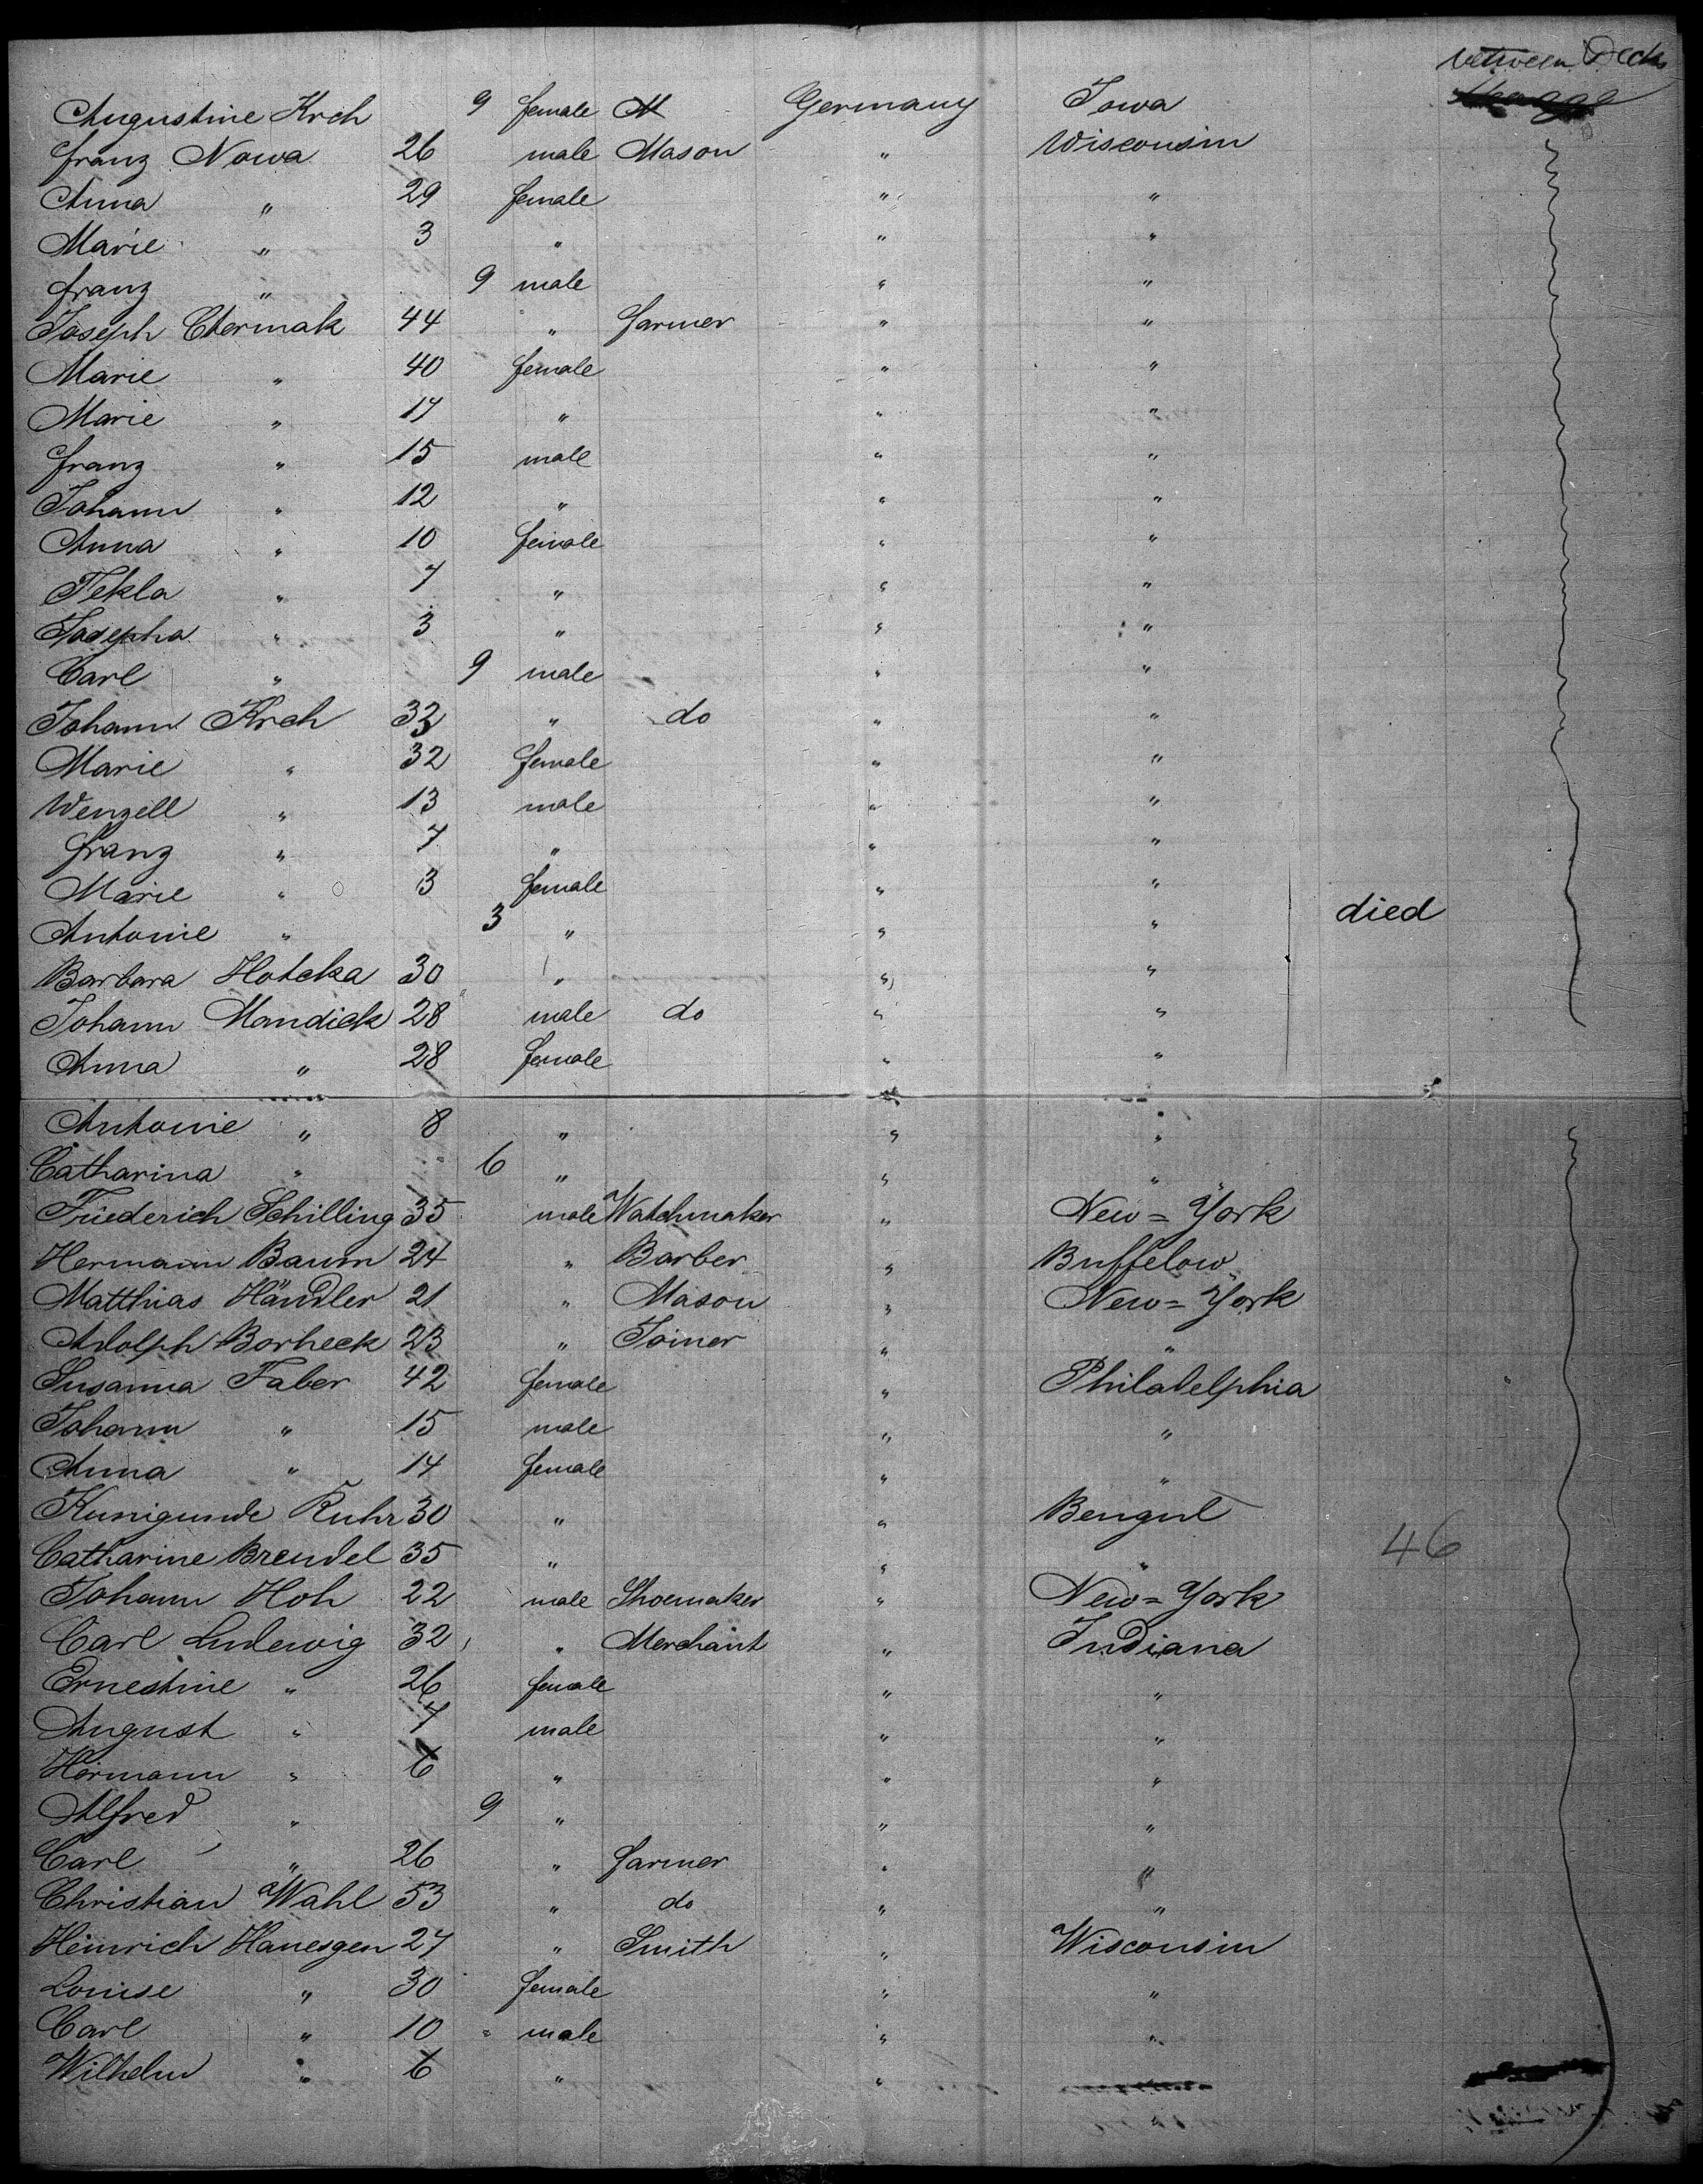 between Decks
Augustine Krch 9 female M Germany Iowa
Franz Nowa 26 male Mason " Wisconsin
Anna " 29 female " "
Marie " 3 " " "
Franz " 9 male " "
Joseph Chermak 44 " farmer " "
Marie " 40 female " "
Marie " 17 " " "
Franz " 15 male " "
Johann " 12 " " "
Anna " 10 female " "
Tekla " 7 " " "
Josepha " 3 " " "
Carl " 9 male " "
Johann Krch 32 " do " "
Marie " 32 female " "
Wenzell " 13 male " "
Franz " 7 " " "
Marie " 3 female " "
Antonie " 3 " " " died
Barbara Hotcka 30 " " "
Johann Mandick 28 male do " "
Anna " 28 female " "
Antonie " 8 " " "
Catharina " 6 " " "
Friederich Schilling 35 male Watchmaker " New=York
Hermann Baum 24 " Barber " Buffelow
Matthias Händler 21 " Mason " New=York
Adolph Borheck 23 " Joiner " "
Susanna Faber 42 female " Philadelphia
Johann " 15 male " "
Anna " 14 female " "
Kunigunde Kuhr 30 " " Bengul
Catharine Brendel 35 " " " 46
Johann Hoh 22 male Shoemaker " New=York
Carl Ludewig 32 " Merchant " Indiana
Ernestine " 26 female " "
August " 7 male " "
Hermann " 6 " " "
Alfred " 9 " " "
Carl " 26 " farmer " "
Christian Wahl 53 " do " "
Heinrich Hanesgen 27 " Smith " Wisconsin
Louise " 30 female " "
Carl " 10 " male " "
Wilhelm " 6 " "